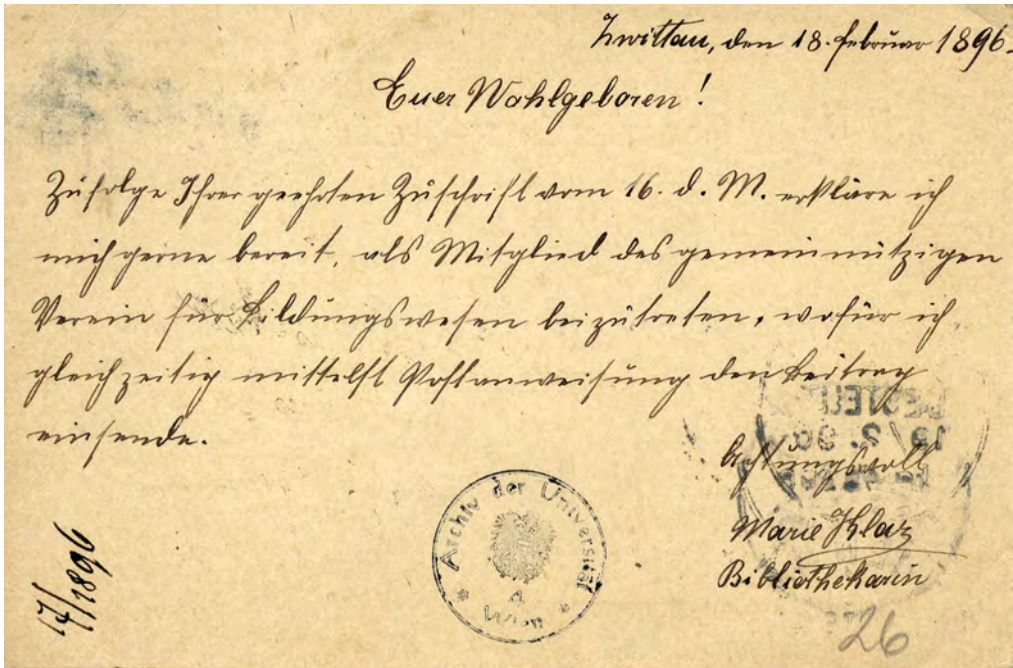 Zwittau, den 18. Februar 1896.
Euer Wohlgeboren!
Zufolge Ihrer geehrten Zuschrift vom 16. d. M. erkläre ich
mich gerne bereit, als Mitglied des gemeinnützigen
Verein für Bildungswesen beizutreten, wofür ich
gleichzeitig mittelst Postanweisung den Beitrag
einsende.
Achtungsvoll
Marie Klaz
Bibliothekarin
Archiv der Universität
Wien
/1896
26